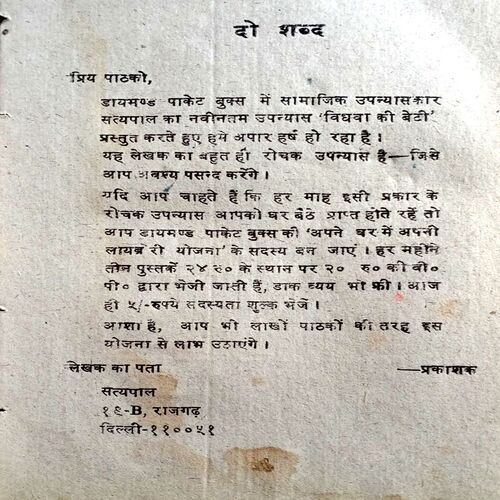 दो शब्द
प्रिय पाठको,
डायमण्ड पाकेट बुक्स में सामाजिक उपन्यासकार
सत्यपाल का नवीनतम उपन्यास 'विधवा की बेटी'
प्रस्तुत करते हुए हमें अपार हर्ष हो रहा है ।
यह लेखक का बहुत ही रोचक उपन्यास है—जिसे
आप अवश्य पसन्द करेंगे ।
यदि आप चाहते हैं कि हर माह इसी प्रकार के
रोचक उपन्यास आपको घर बैठे प्राप्त होते रहें तो
आप डायमण्ड पाकेट बुक्स की 'अपने घर में अपनी
लायब्रेरी योजना' के सदस्य बन जाएं । हर महीने
तीन पुस्तकें २४ रु० के स्थान पर २० रु० की वी०
पी० द्वारा भेजी जाती हैं, डाक व्यय भी फ्री । आज
ही ५/-रुपये सदस्यता शुल्क भेजें ।
आशा है, आप भी लाखों पाठकों की तरह इस
योजना से लाभ उठाएंगे ।
लेखक का पता —प्रकाशक
सत्यपाल
१९-B, राजगढ़
दिल्ली-११००५१